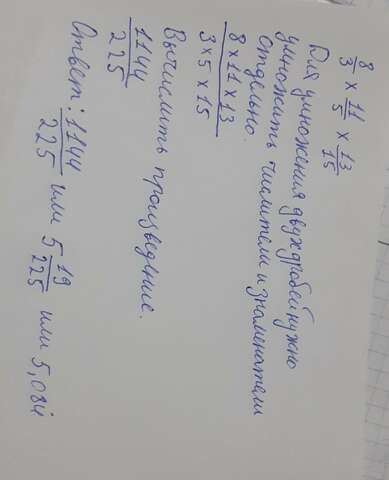 8/3 × 11/5 × 13/15
Для умножения двух дробей нужно
умножить числители и знаменатели
отдельно.
8 × 11 × 13 / 3 × 5 × 15
Вычислить произведение.
1144/225
Ответ: 1144/225 или 5 19/225 или 5,084